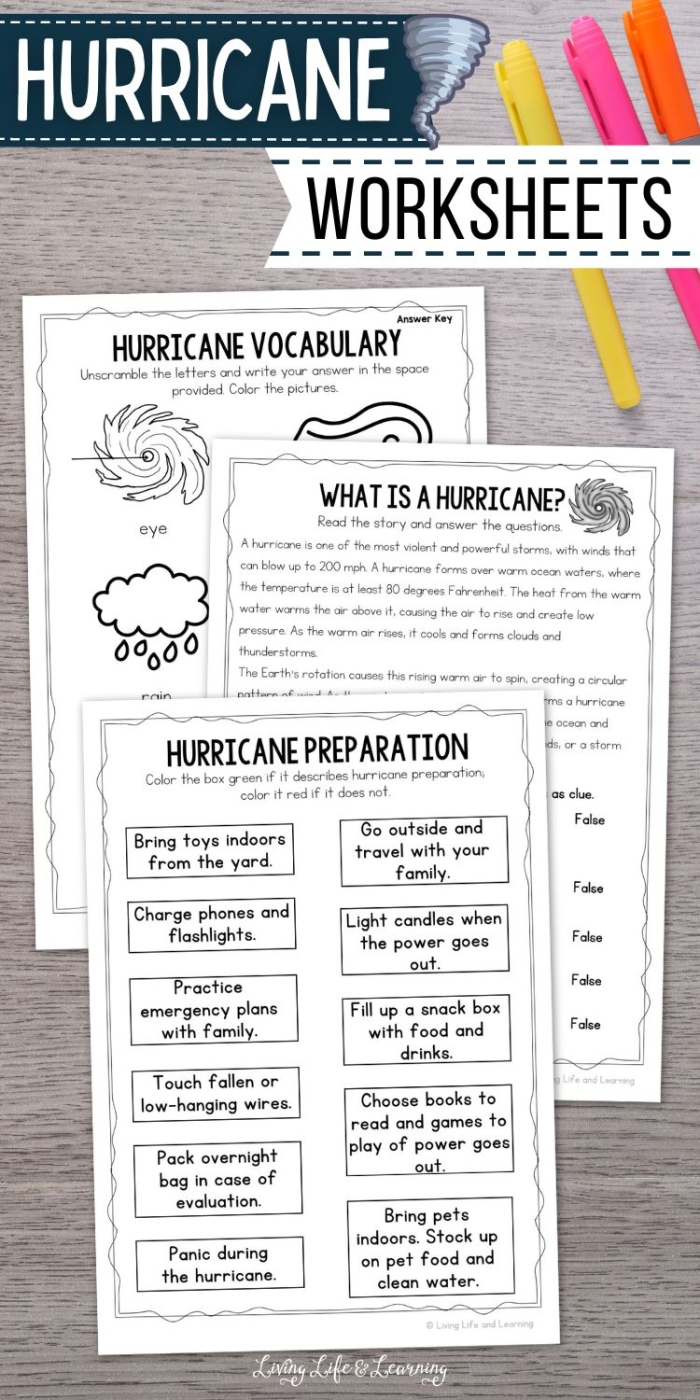 HURRICANE
WORKSHEETS
Answer Key
HURRICANE VOCABULARY
Unscramble the letters and write your answer in the space
provided. Color the pictures.
eye
rain
WHAT IS A HURRICANE?
Read the story and answer the questions.
A hurricane is one of the most violent and powerful storms, with winds that
can blow up to 200 mph. A hurricane forms over warm ocean waters, where
the temperature is at least 80 degrees Fahrenheit. The heat from the warm
water warms the air above it, causing the air to rise and create low
pressure. As the warm air rises, it cools and forms clouds and
thunderstorms.
The Earth's rotation causes this rising warm air to spin, creating a circular
pattern of wind.
rms a hurricane
e ocean and
ds, or a storm
as clue.
False
False
False
False
False
g Life and Learning
HURRICANE PREPARATION
Color the box green if it describes hurricane preparation,
color it red if it does not.
Bring toys indoors
from the yard.
Charge phones and
flashlights.
Practice
emergency plans
with family.
Touch fallen or
low-hanging wires.
Pack overnight
bag in case of
evaluation.
Panic during
the hurricane.
Go outside and
travel with your
family.
Light candles when
the power goes
out.
Fill up a snack box
with food and
drinks.
Choose books to
read and games to
play of power goes
out.
Bring pets
indoors. Stock up
on pet food and
clean water.
© Living Life and Learning
Living Life & Learning